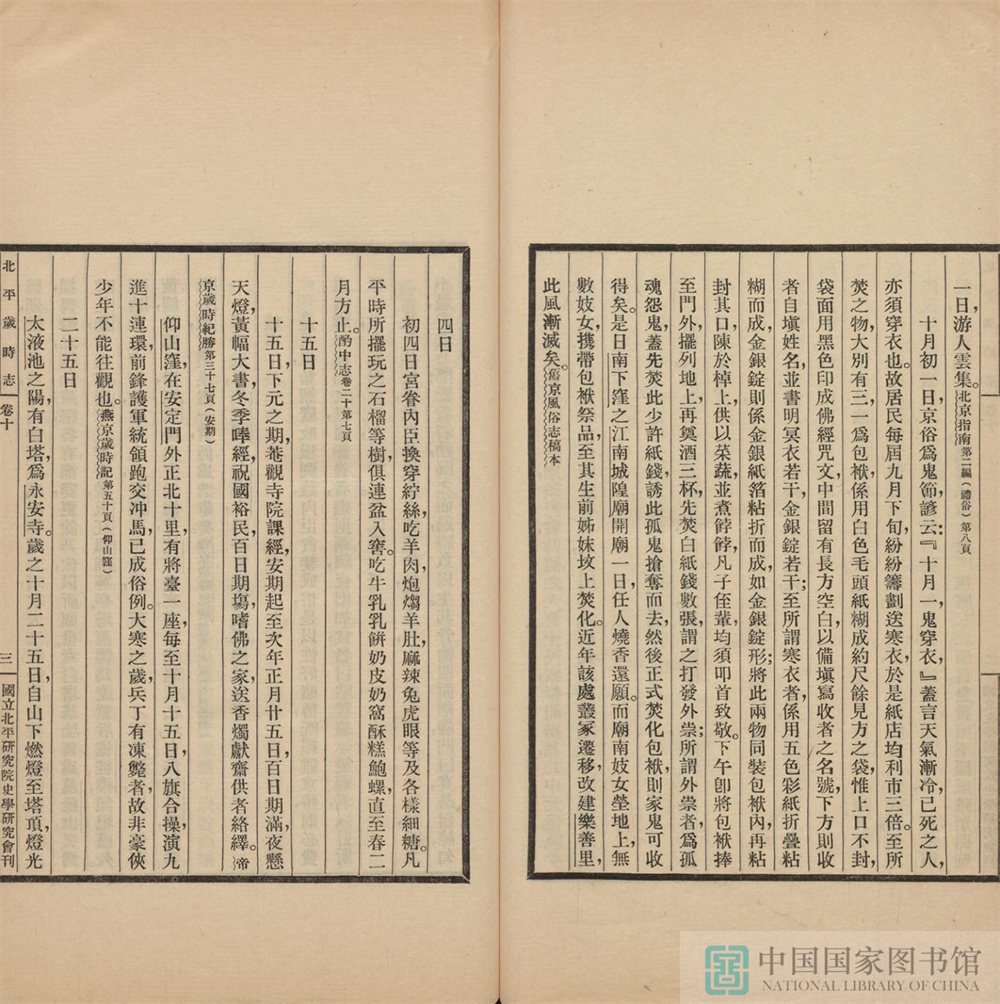 一日，游人雲集。北京指南第二編（禮俗）第八頁
十月初一日，京俗爲鬼節，諺云：『十月一，鬼穿衣，』蓋言天氣漸冷，已死之人，
亦須穿衣也。故居民每屆九月下旬，紛紛籌劃送寒衣，於是紙店均利市三倍。至所
焚之物，大別有三，一爲包袱，係用白色毛頭紙糊成約尺餘見方之袋，惟上口不封，
袋面用黑色印成佛經咒文，中間留有長方空白，以備塡寫收者之名號，下方則收
者自塡姓名，並書明冥衣若干，金銀錠若干；至所謂寒衣者，係用五色彩紙折疊粘
糊而成，金銀錠則係金銀紙箔粘折而成，如金銀錠形；將此兩物同裝包袱內，再粘
封其口，陳於棹上，供以菜蔬，並煮餑餑，凡子侄輩，均須叩首致敬。下午卽將包袱捧
至門外，擺列地上，再奠酒三杯，先焚白紙錢數張，謂之打發外祟；所謂外祟者，爲孤
魂怨鬼，蓋先焚此少許紙錢，誘此孤鬼搶奪而去，然後正式焚化包袱，則家鬼可收
得矣。是日南下窪之江南城隍廟開廟一日，任人燒香還願。而廟南妓女塋地上，無
數妓女，攜帶包袱祭品，至其生前姊妹坟上焚化。近年該處叢冢遷移，改建樂善里，
此風漸滅矣。舊京風俗志稿本
四日
初四日，宮眷內臣換穿紵絲，吃羊肉炮爁羊肚，麻辣兔，虎眼等，及各樣細糖。凡
平時所擺玩之石榴等樹，俱連盆入窖。吃牛乳，乳餅，奶皮，奶窩，酥糕，鮑螺，直至春二
月方止。酌中志卷二十第七頁
十五日
十五日，下元之期，菴觀寺院課經安期，起至次年正月廿五日，百日期滿，夜懸
天燈，黃幅大書冬季唪經祝國裕民百日期塲，嗜佛之家，送香燭獻齋供者絡繹。帝
京歲時紀勝第三十七頁（安期）
仰山窪，在安定門外正北十里，有將臺一座，每至十月十五日，八旗合操，演九
進十連環，前鋒護軍統領跑交冲馬，已成俗例。大寒之歲，兵丁有凍斃者，故非豪俠
少年不能往觀也。燕京歲時記第五十頁（仰山窪）
二十五日
太液池之陽，有白塔，爲永安寺。歲之十月二十五日，自山下燃燈至塔頂，燈光
北平歲時志 卷十 三 國立北平研究院史學研究會刊
中国国家图书馆
NATIONAL LIBRARY OF CHINA